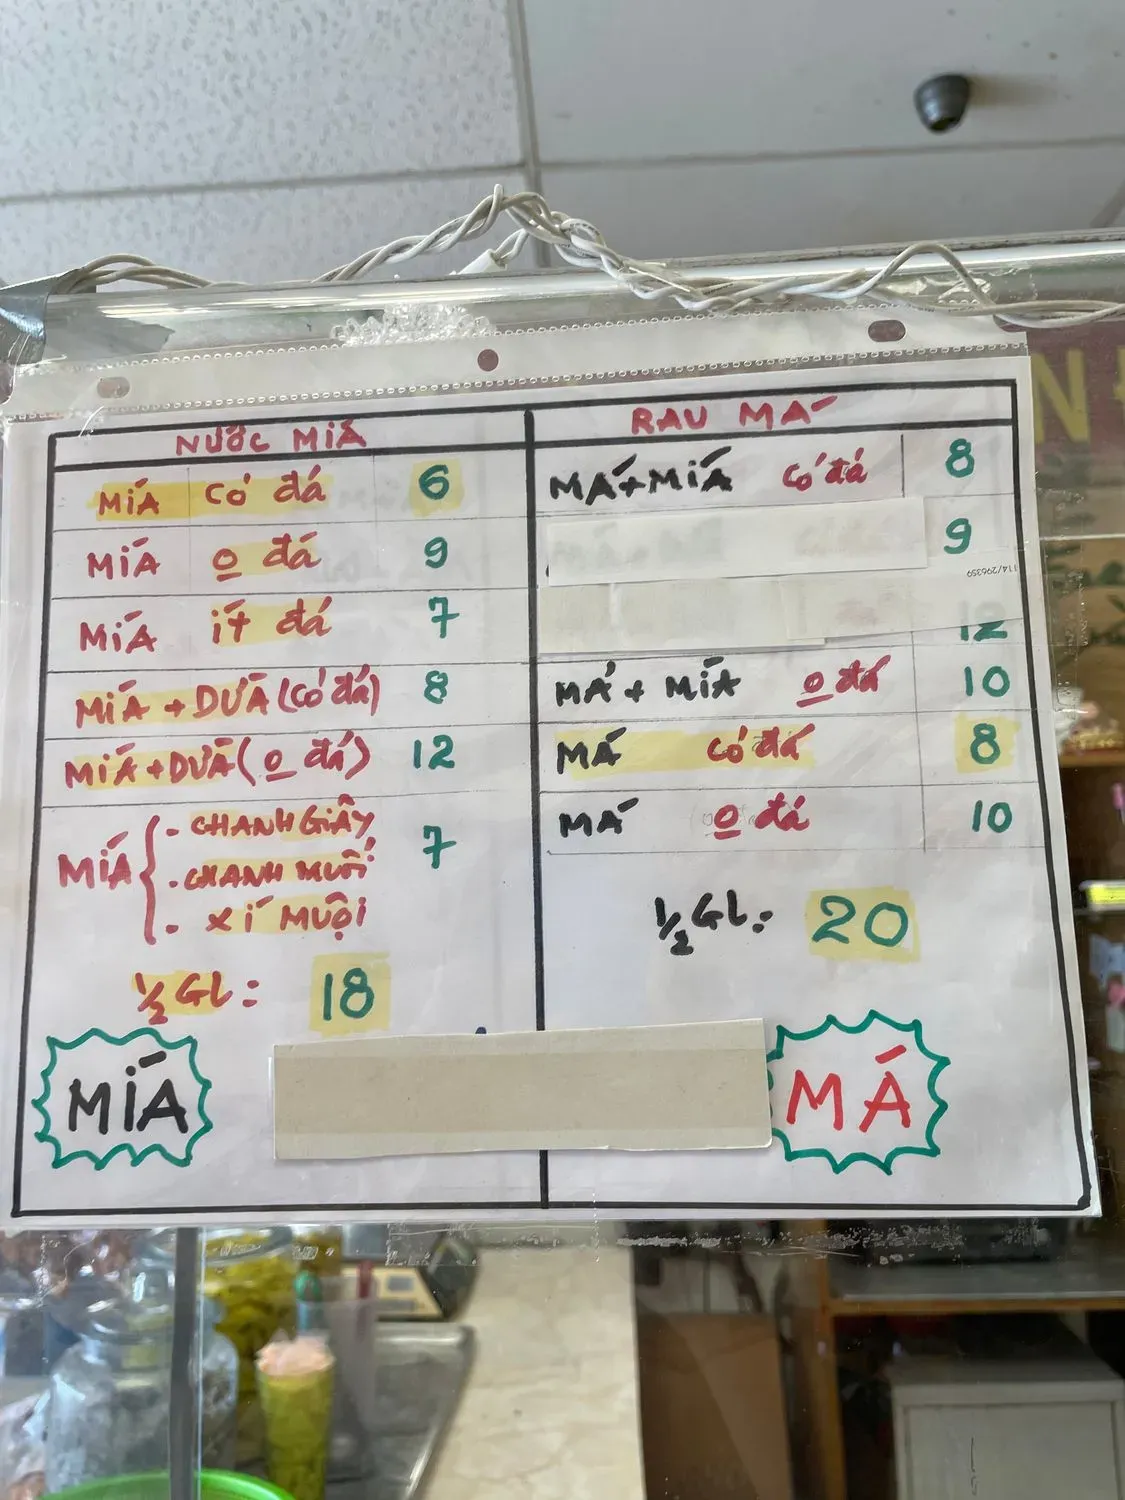 NƯỚC MÍA
MÍA có đá 6
MÍA o đá 9
MÍA ít đá 7
MÍA + DỪA (có đá) 8
MÍA + DỪA (o đá) 12
MÍA { . CHANH GIÂY 7
. CHANH MUỐI
. XÍ MUỘI
1/2 GL: 18
MÍA
RAU MÁ
MÁ + MÍA có đá 8
9
114/296359
12
MÁ + MÍA o đá 10
MÁ có đá 8
MÁ o đá 10
1/2 GL: 20
MÁ